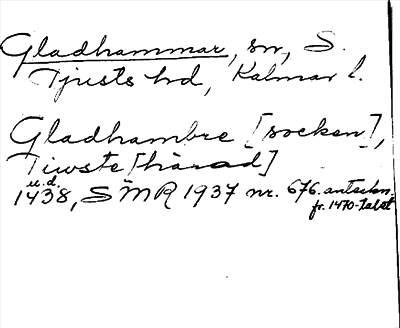 Gladhammar, sn, S.
Tjusts hd, Kalmar l.
Gladhambre [socken],
Tiwste [härad]
u.d.
1438, SMR 1937 nr. 676. anteckn.
fr. 1470-talet